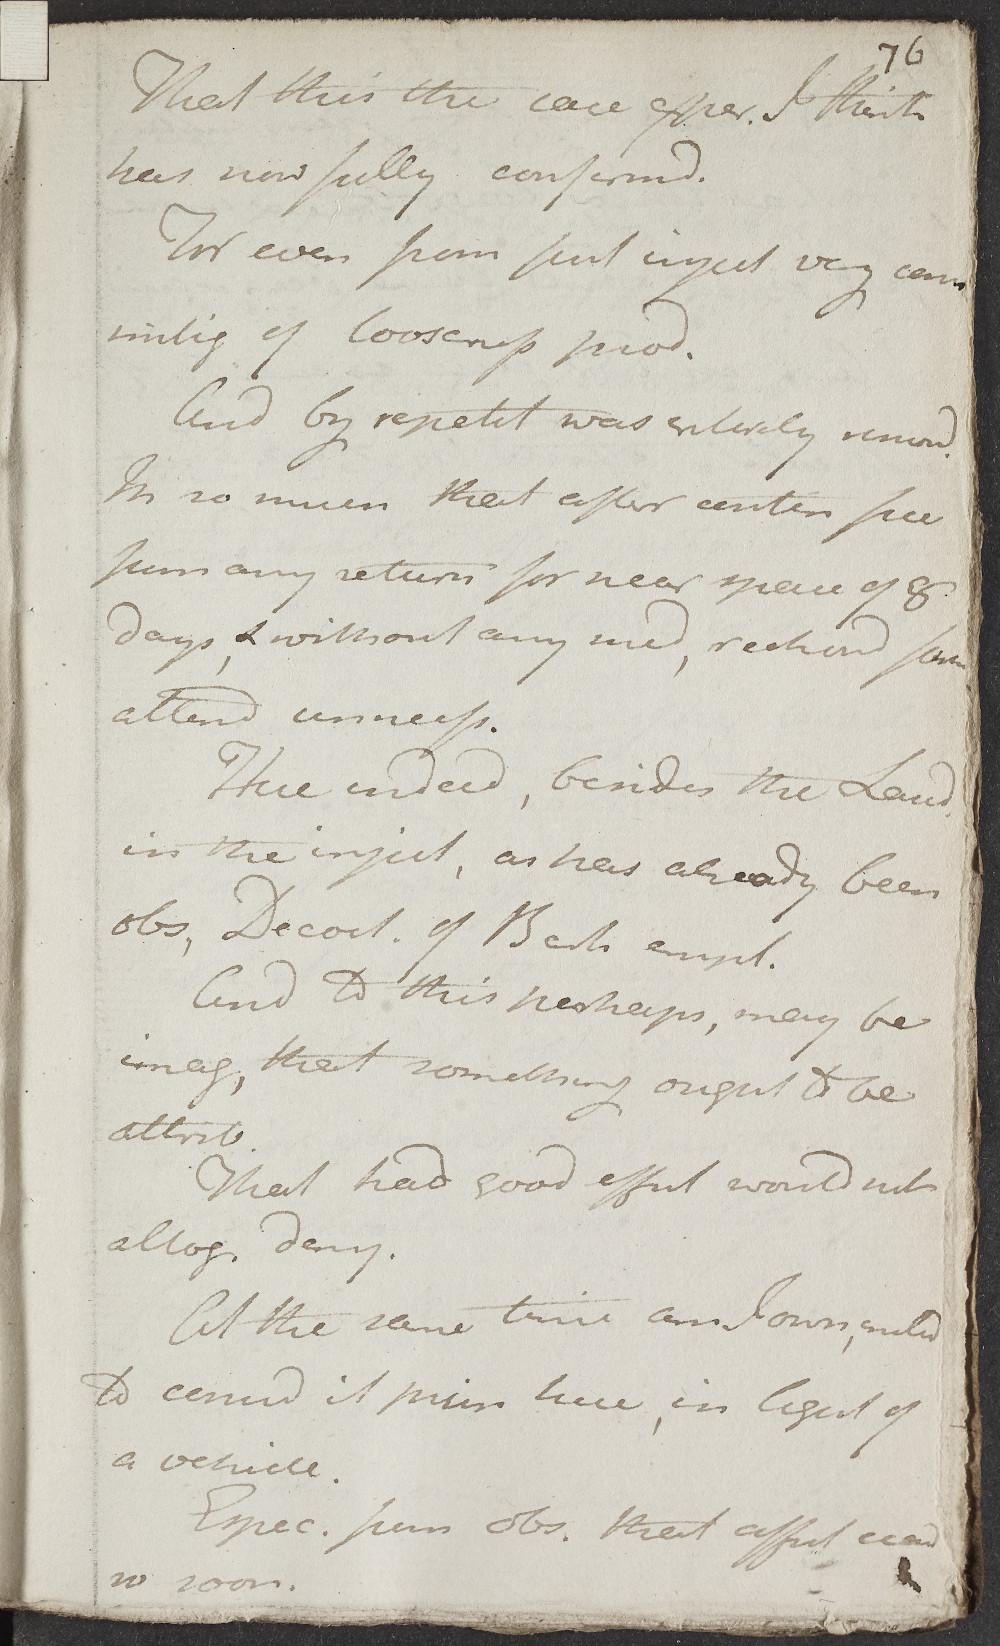 76
That this the case exper. I think
has now fully confirmd.
For even from first inject very cons
mitig of looseness prod.
And by repetit was entirely remov'd.
In so much that after contin free
from any return for near space of 8
days, & without any med, reckond farr
attend unnecess.
Here indeed, besides the Laud.
in the inject, as has already been
obs, Decoct. of Bark empl.
And to this perhaps, may be
imag, that something ought to be
attrib.
That had good effect would not
altog. deny.
At the same time am I own, inclind
to consid it princ here, in light of
a vehicle.
Espec. from obs. that affect ceasd
so soon.